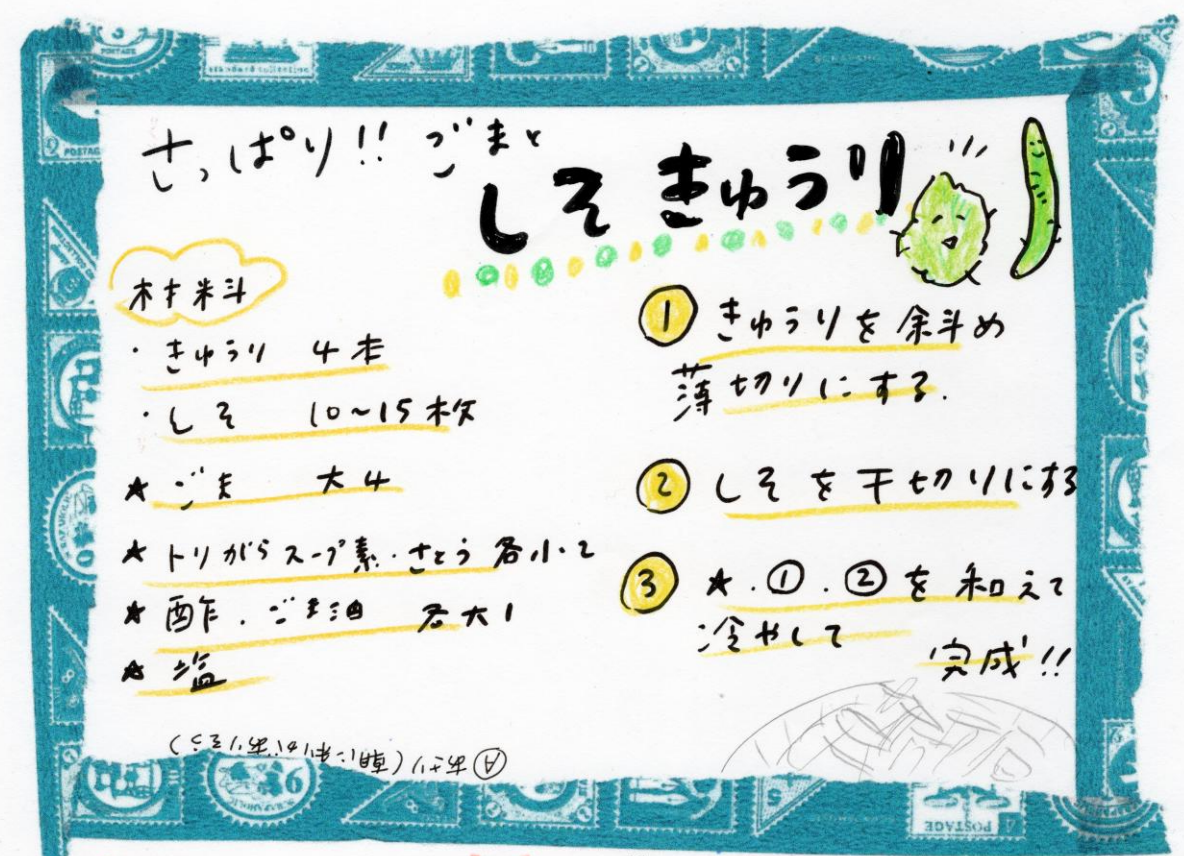 さっぱり!! ごまと
しそきゅうり
材料
・きゅうり 4本
・しそ 10~15枚
★ごま 大4
★トリがらスープ素・さとう 各小2
★酢・ごま油 各大1
★塩
① きゅうりを斜め
薄切りにする.
② しそを千切りにする
③ ★・①・②を和えて
冷やして
完成!!
Ⓐ あさり
POSTAGE
POSTAGE